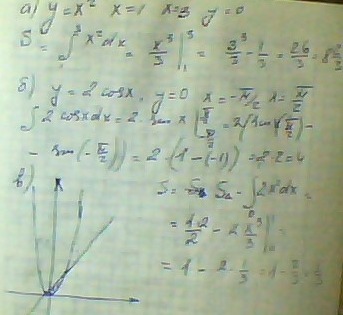 а) y = x² x = 1 x = 3 y = 0
S = ∫₁³ x² dx = x³/3 |₁³ = 3³/3 - 1/3 = 26/3 = 8 2/3
б) y = 2 cosx, y = 0 x = -π/2 x = π/2
∫ 2 cosxdx = 2 · sin x | = 2 (sin (π/2) -
- sin(-π/2)) = 2 · (1 - (-1)) = 2·2 = 4
в)
S = S - ∫ 2x² dx =
= 1·2/2 - 2 x³/3 |₀¹ =
= 1 - 2 · 1/3 = 1 - 2/3 = 1/3